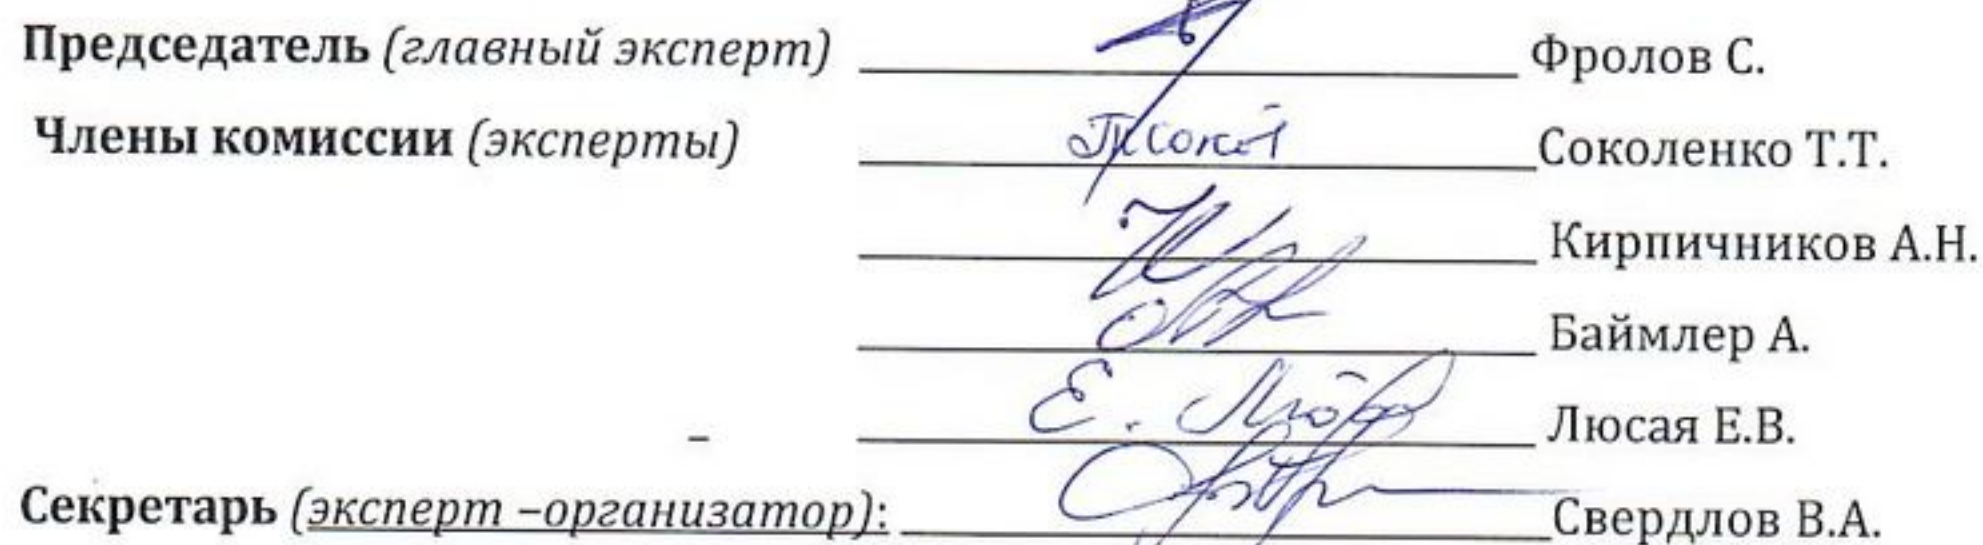 Председатель (главный эксперт) Фролов С.
Члены комиссии (эксперты) Соколенко Т.Т.
Кирпичников А.Н.
Баймлер А.
Е. Люсая Е.В.
Секретарь (эксперт –организатор): Свердлов В.А.